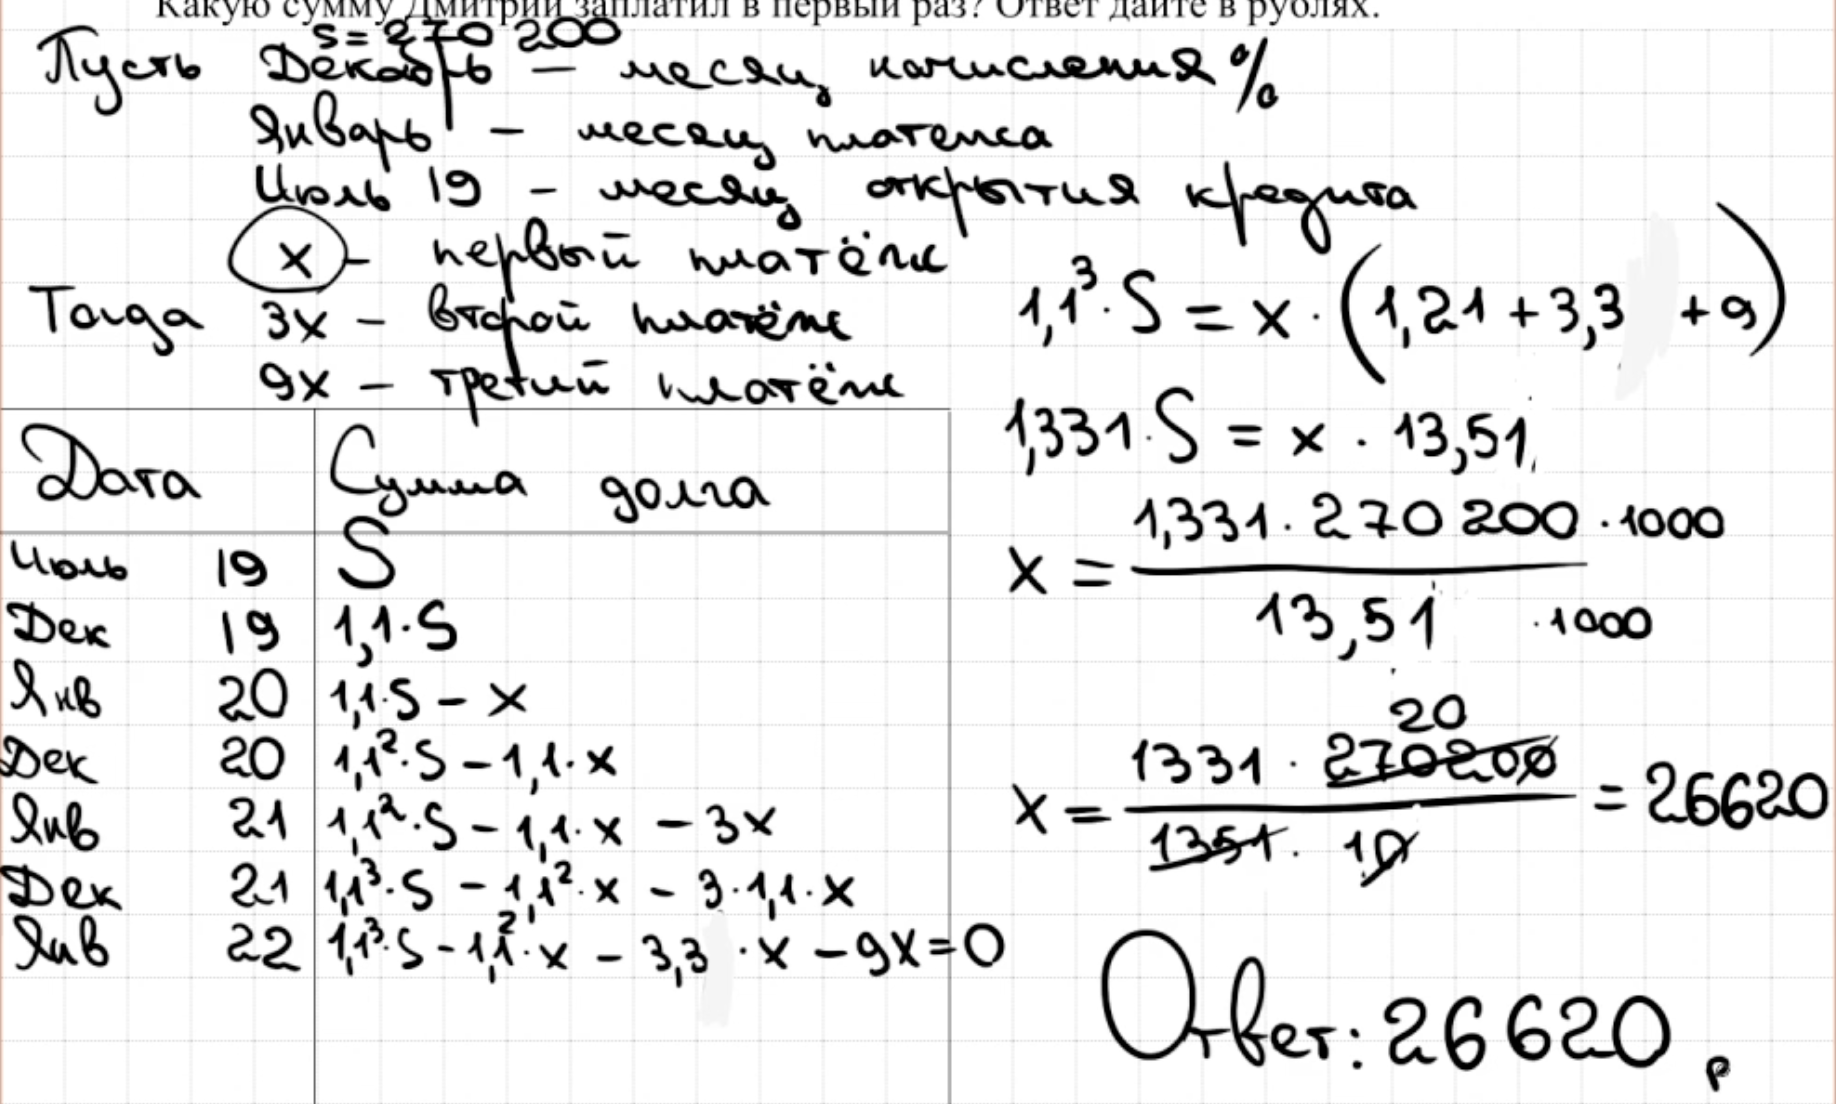 Какую сумму Дмитрий заплатил в первый раз? Ответ дайте в рублях.
S = 270 200
Пусть Декабрь – месяц начисления %
Январь – месяц платежа
Июль 19 – месяц открытия кредита
x – первый платёж
Тогда 3x – второй платёж
9x – третий платёж
Дата Сумма долга
Июль 19 S
Дек 19 1,1·S
Янв 20 1,1·S – x
Дек 20 1,1²·S – 1,1·x
Янв 21 1,1²·S – 1,1·x – 3x
Дек 21 1,1³·S – 1,1²·x – 3·1,1·x
Янв 22 1,1³·S – 1,1²·x – 3,3·x – 9x = 0
1,1³·S = x·(1,21 + 3,3 + 9)
1,331·S = x · 13,51
1,331 · 270 200 · 1000
x =
13,51 · 1000
20
1331 · 270200
x = = 26620
1351 · 10
Ответ: 26620 р